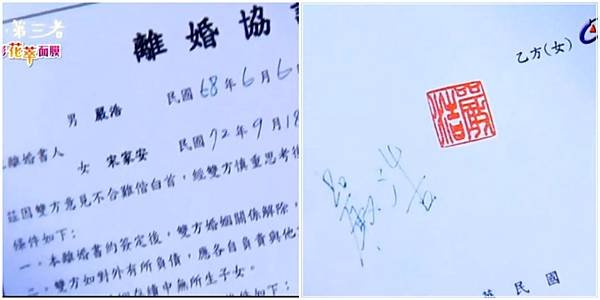 第三者
花萃面膜
離婚協
男 嚴浩 民國68年6月6
離婚書人
女 宋家安 民國72年9月18
茲因雙方意見不合難偕白首，經雙方慎重思考後
條件如下：
一。本離婚書約簽定後，雙方婚姻關係解除，
二。雙方如對外有所負債，應各自負責與他
存續中無所生子女。
乙方(女)
嚴浩
嚴浩
民國